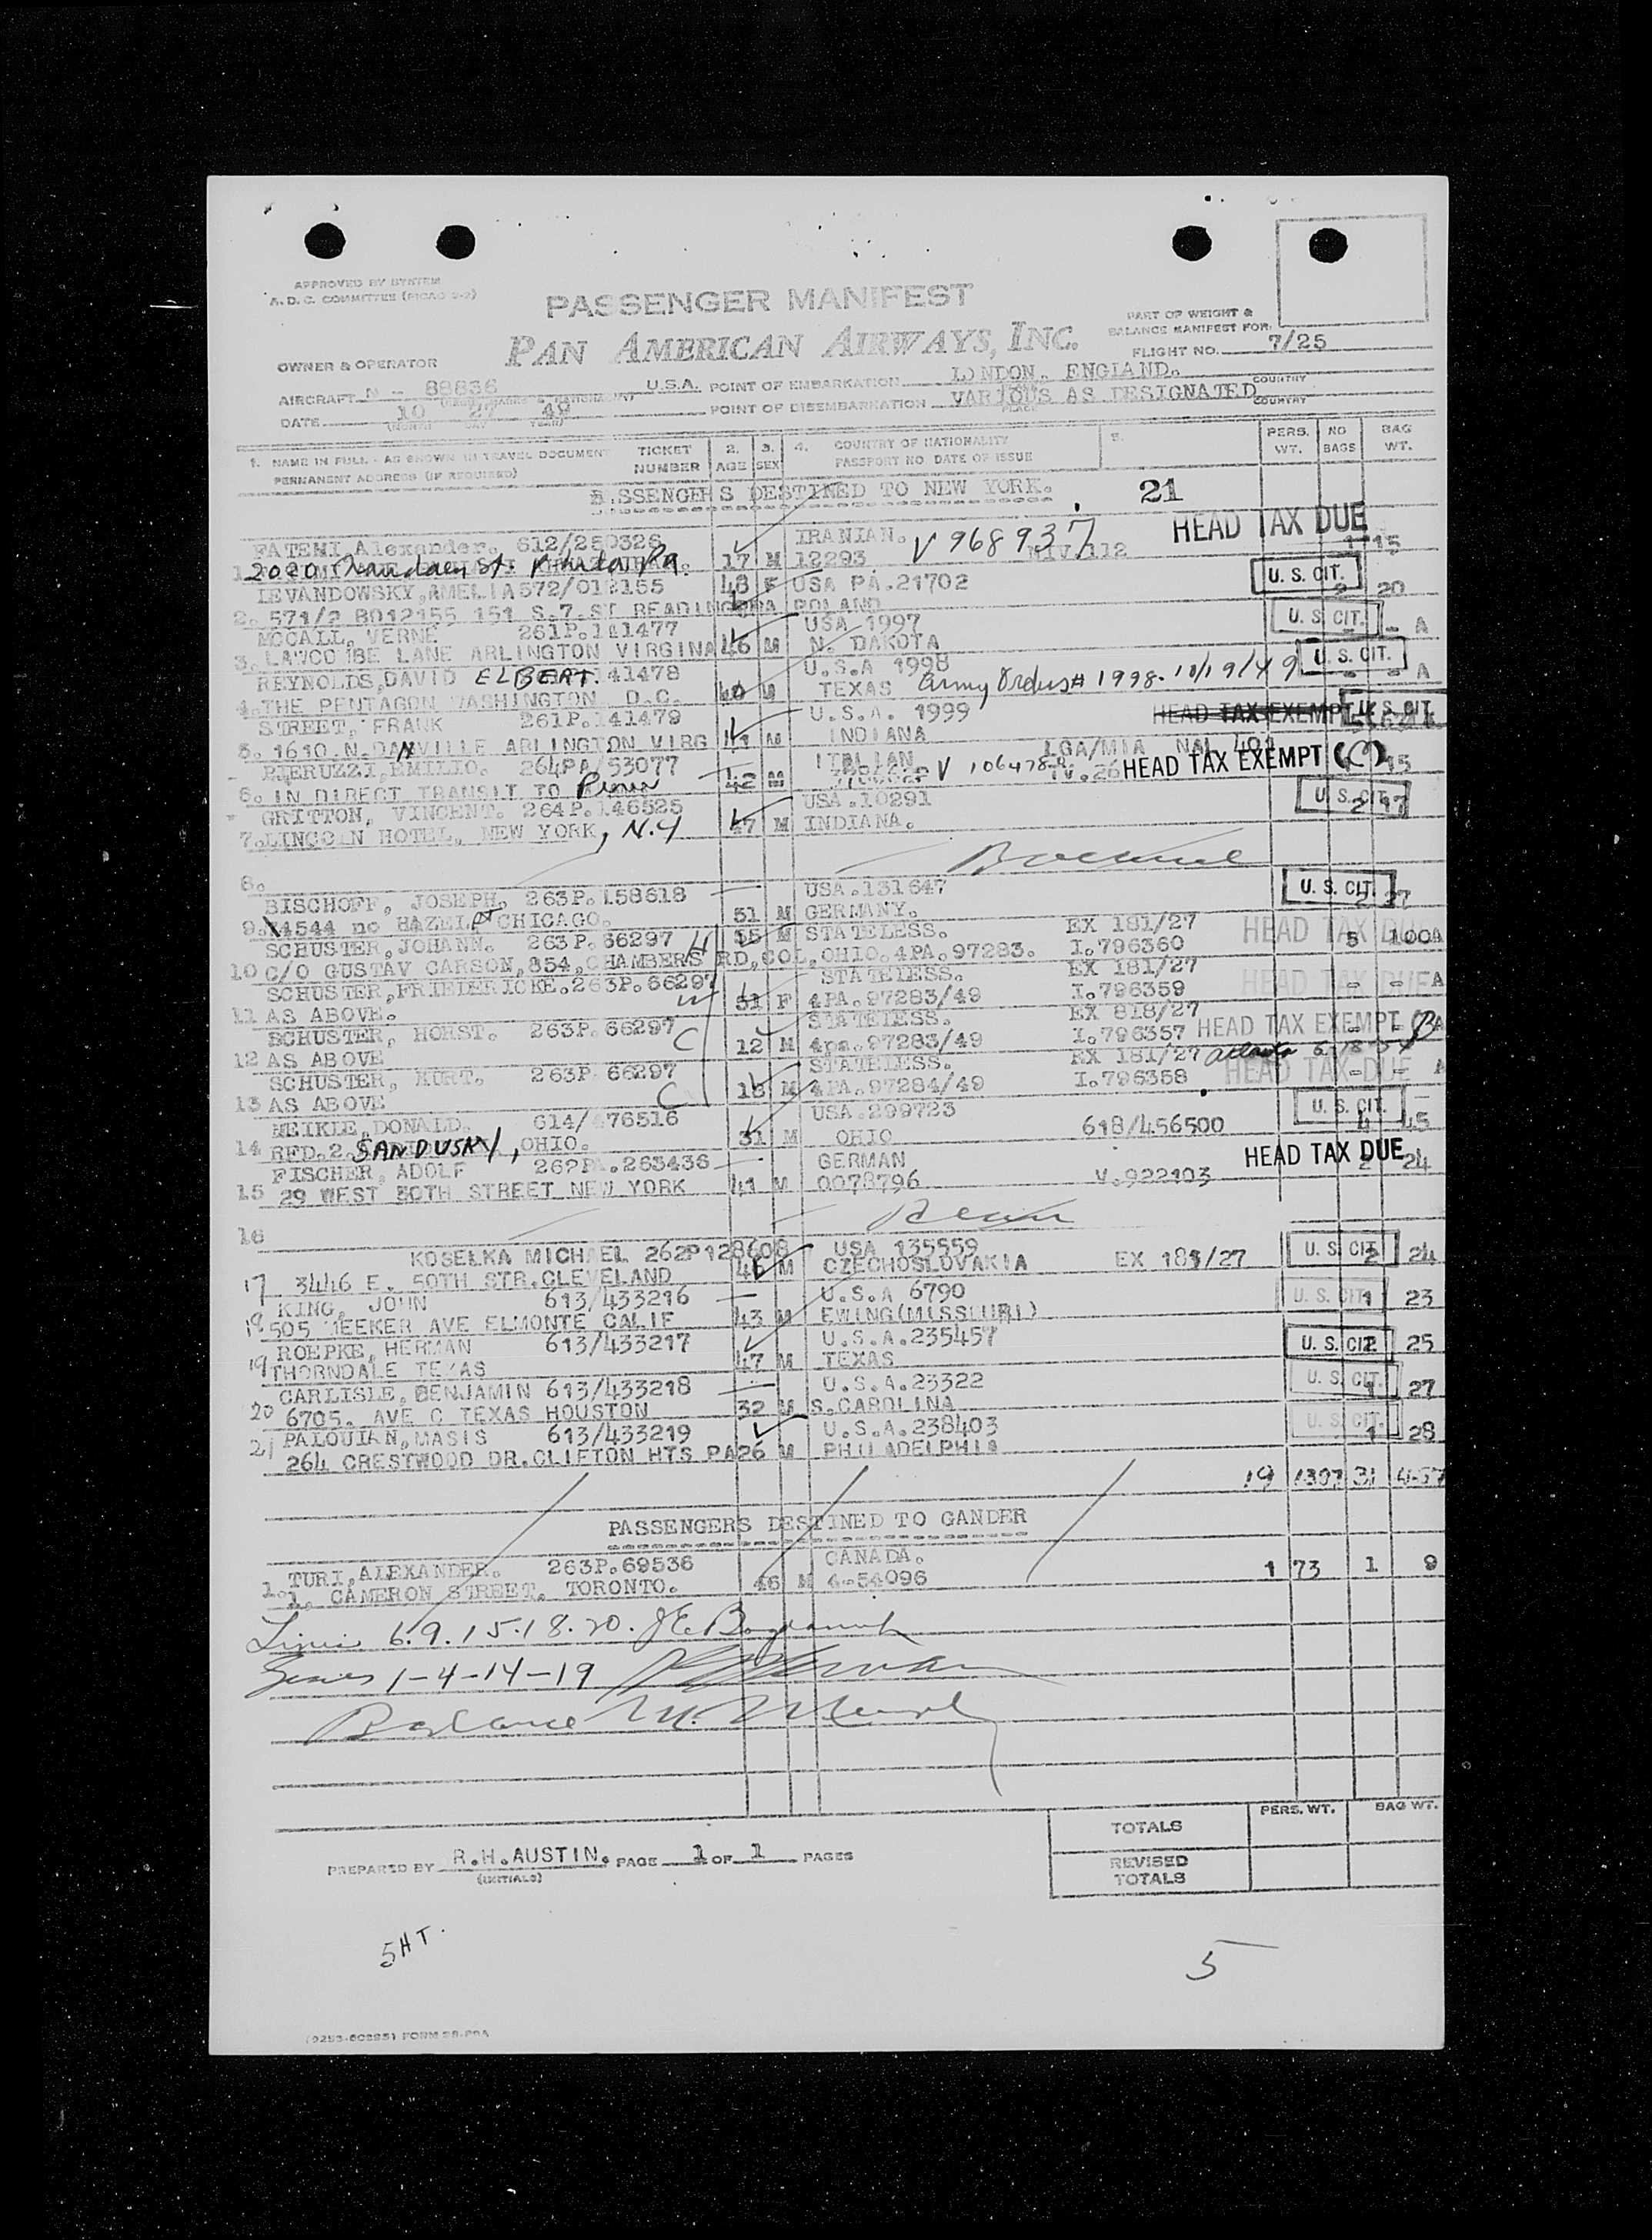 APPROVED BY SYSTEM
A. D. C. COMMITTEE (PICAO 2-2)
PASSENGER MANIFEST
PAN AMERICAN AIRWAYS, INC.
PART OF WEIGHT &
BALANCE MANIFEST FOR:
FLIGHT NO. 7/25
OWNER & OPERATOR
AIRCRAFT N - 88836 U.S.A. POINT OF EMBARKATION LONDON. ENGLAND. COUNTRY
DATE 10 27 49 POINT OF DISEMBARKATION VARIOUS AS DESIGNATED COUNTRY
(MONTH DAY YEAR) PLACE
1. NAME IN FULL - AS SHOWN IN TRAVEL DOCUMENT TICKET 2. 3. 4. COUNTRY OF NATIONALITY 5. PERS. NO BAG
PERMANENT ADDRESS (IF REQUIRED) NUMBER AGE SEX PASSPORT NO DATE OF ISSUE WT. BAGS WT.
SSENGERS DESTINED TO NEW YORK. 21
FATENI Alexander. 612/250326 IRANIAN. V 968937 HEAD TAX DUE
2020 St. Pa. 17 M 12293 15
LEVANDOWSKY, AMELIA 572/012155 48 F USA PA.21702 U. S. CIT. 2 20
2. 571/2 8012155 151 S.7.ST READING PA POLAND
MCCALL, VERNE 261P.141477 USA 1997 U. S. CIT. - - A
3. LANE ARLINGTON VIRGINA 46 M N. DAKOTA
REYNOLDS, DAVID ELBERT. 41478 U.S.A 1998 U. S. CIT.
4. THE PENTAGON WASHINGTON D.C. 40 M TEXAS Army Orders # 1998-10/19/49 - - A
STREET, FRANK 261P.141479 U.S.A. 1999 HEAD TAX EXEMPT U. S. CIT.
5. 1610 N. DANVILLE ARLINGTON VIRG 41 M INDIANA
PIERUZZI, EMILIO. 264PA/53077 ITALIAN LGA/MIA NAL 401
6. IN DIRECT TRANSIT TO 42 M V 106478 HEAD TAX EXEMPT (C) 15
GRITTON, VINCENT. 264P.146525 USA.10291 U. S. CIT. 2 17
7. LINCOLN HOTEL, NEW YORK, N.Y 47 M INDIANA.
8.
BISCHOFF, JOSEPH, 263P.158618 USA.131647 U. S. CIT. 2 27
9. 4544 no HAZEL CHICAGO. 51 M GERMANY.
SCHUSTER, JOHANN. 263P.66297 H 55 M STATELESS. EX 181/27 HEAD TAX DUE 5 100A
10 C/O GUSTAV CARSON, 854, CHAMBERS RD, COL, OHIO. 4PA.97283. I.796360
SCHUSTER, FRIEDERICKE. 263P.66297 STATELESS. EX 181/27 HEAD TAX DUE
11 AS ABOVE. W 51 F 4PA.97283/49 I.796359 - - A
SCHUSTER, HORST. 263P.66297 STATELESS. EX 818/27
12 AS ABOVE C 12 M 4pa.97283/49 I.796357 HEAD TAX EXEMPT - A
SCHUSTER, KURT. 263P 66297 STATELESS. EX 181/27
13 AS ABOVE C 18 M 4PA.97284/49 I.796358 HEAD TAX DUE - - A
MEIKLE, DONALD. 614/ 76516 USA.209723 U. S. CIT.
14 RFD.2. SANDUSKY, OHIO. 31 M OHIO 618/456500 4 45
FISCHER, ADOLF 262PA.263436 GERMAN HEAD TAX DUE 2 24
15 29 WEST 50TH STREET NEW YORK 41 M 0078796 V.922103
16
KOSELKA MICHAEL 262P128608 USA 135559 U. S. CIT. 2 24
17 3446 E. 50TH STR. CLEVELAND 46 M CZECHOSLOVAKIA EX 181/27
KING, JOHN 613/433216 U.S.A 6790 U. S. CIT. 1 23
18 505 MEEKER AVE ELMONTE CALIF 43 M EWING(MISSOURI)
ROEPKE, HERMAN 613/433217 U.S.A.235457 U. S. CIT. 2 25
19 THORNDALE TEXAS 47 M TEXAS
CARLISLE, BENJAMIN 613/433218 U.S.A.23322 U. S. CIT. 1 27
20 6705. AVE C TEXAS HOUSTON 32 M S. CAROLINA
PALOUIAN, MASIS 613/433219 U.S.A.238403 U. S. CIT. 1 28
21 264 CRESTWOOD DR. CLIFTON HTS PA 26 M PHILADELPHIA
19 1307 31 457
PASSENGERS DESTINED TO GANDER
TURI, ALEXANDER. 263P.69536 CANADA. 1 73 1 9
1. 1, CAMERON STREET. TORONTO. 46 M 4-54096
Lines 6.9.15.18.20.
Lines 1-4-14-19
Balance
TOTALS PERS. WT. BAG WT.
REVISED
TOTALS
PREPARED BY R.H.AUSTIN. PAGE 1 OF 1 PAGES
(INITIALS)
5HT.
5